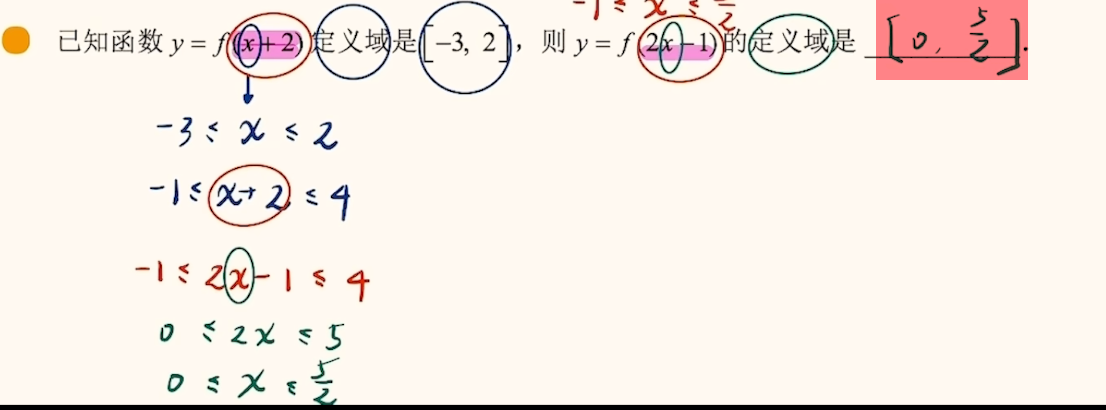 -1 ≤ x ≤ 5/2
已知函数 y = f(x+2)定义域是[-3, 2]，则 y = f(2x-1)的定义域是 [0, 5/2].
-3 ≤ x ≤ 2
-1 ≤ x+2 ≤ 4
-1 ≤ 2x-1 ≤ 4
0 ≤ 2x ≤ 5
0 ≤ x ≤ 5/2